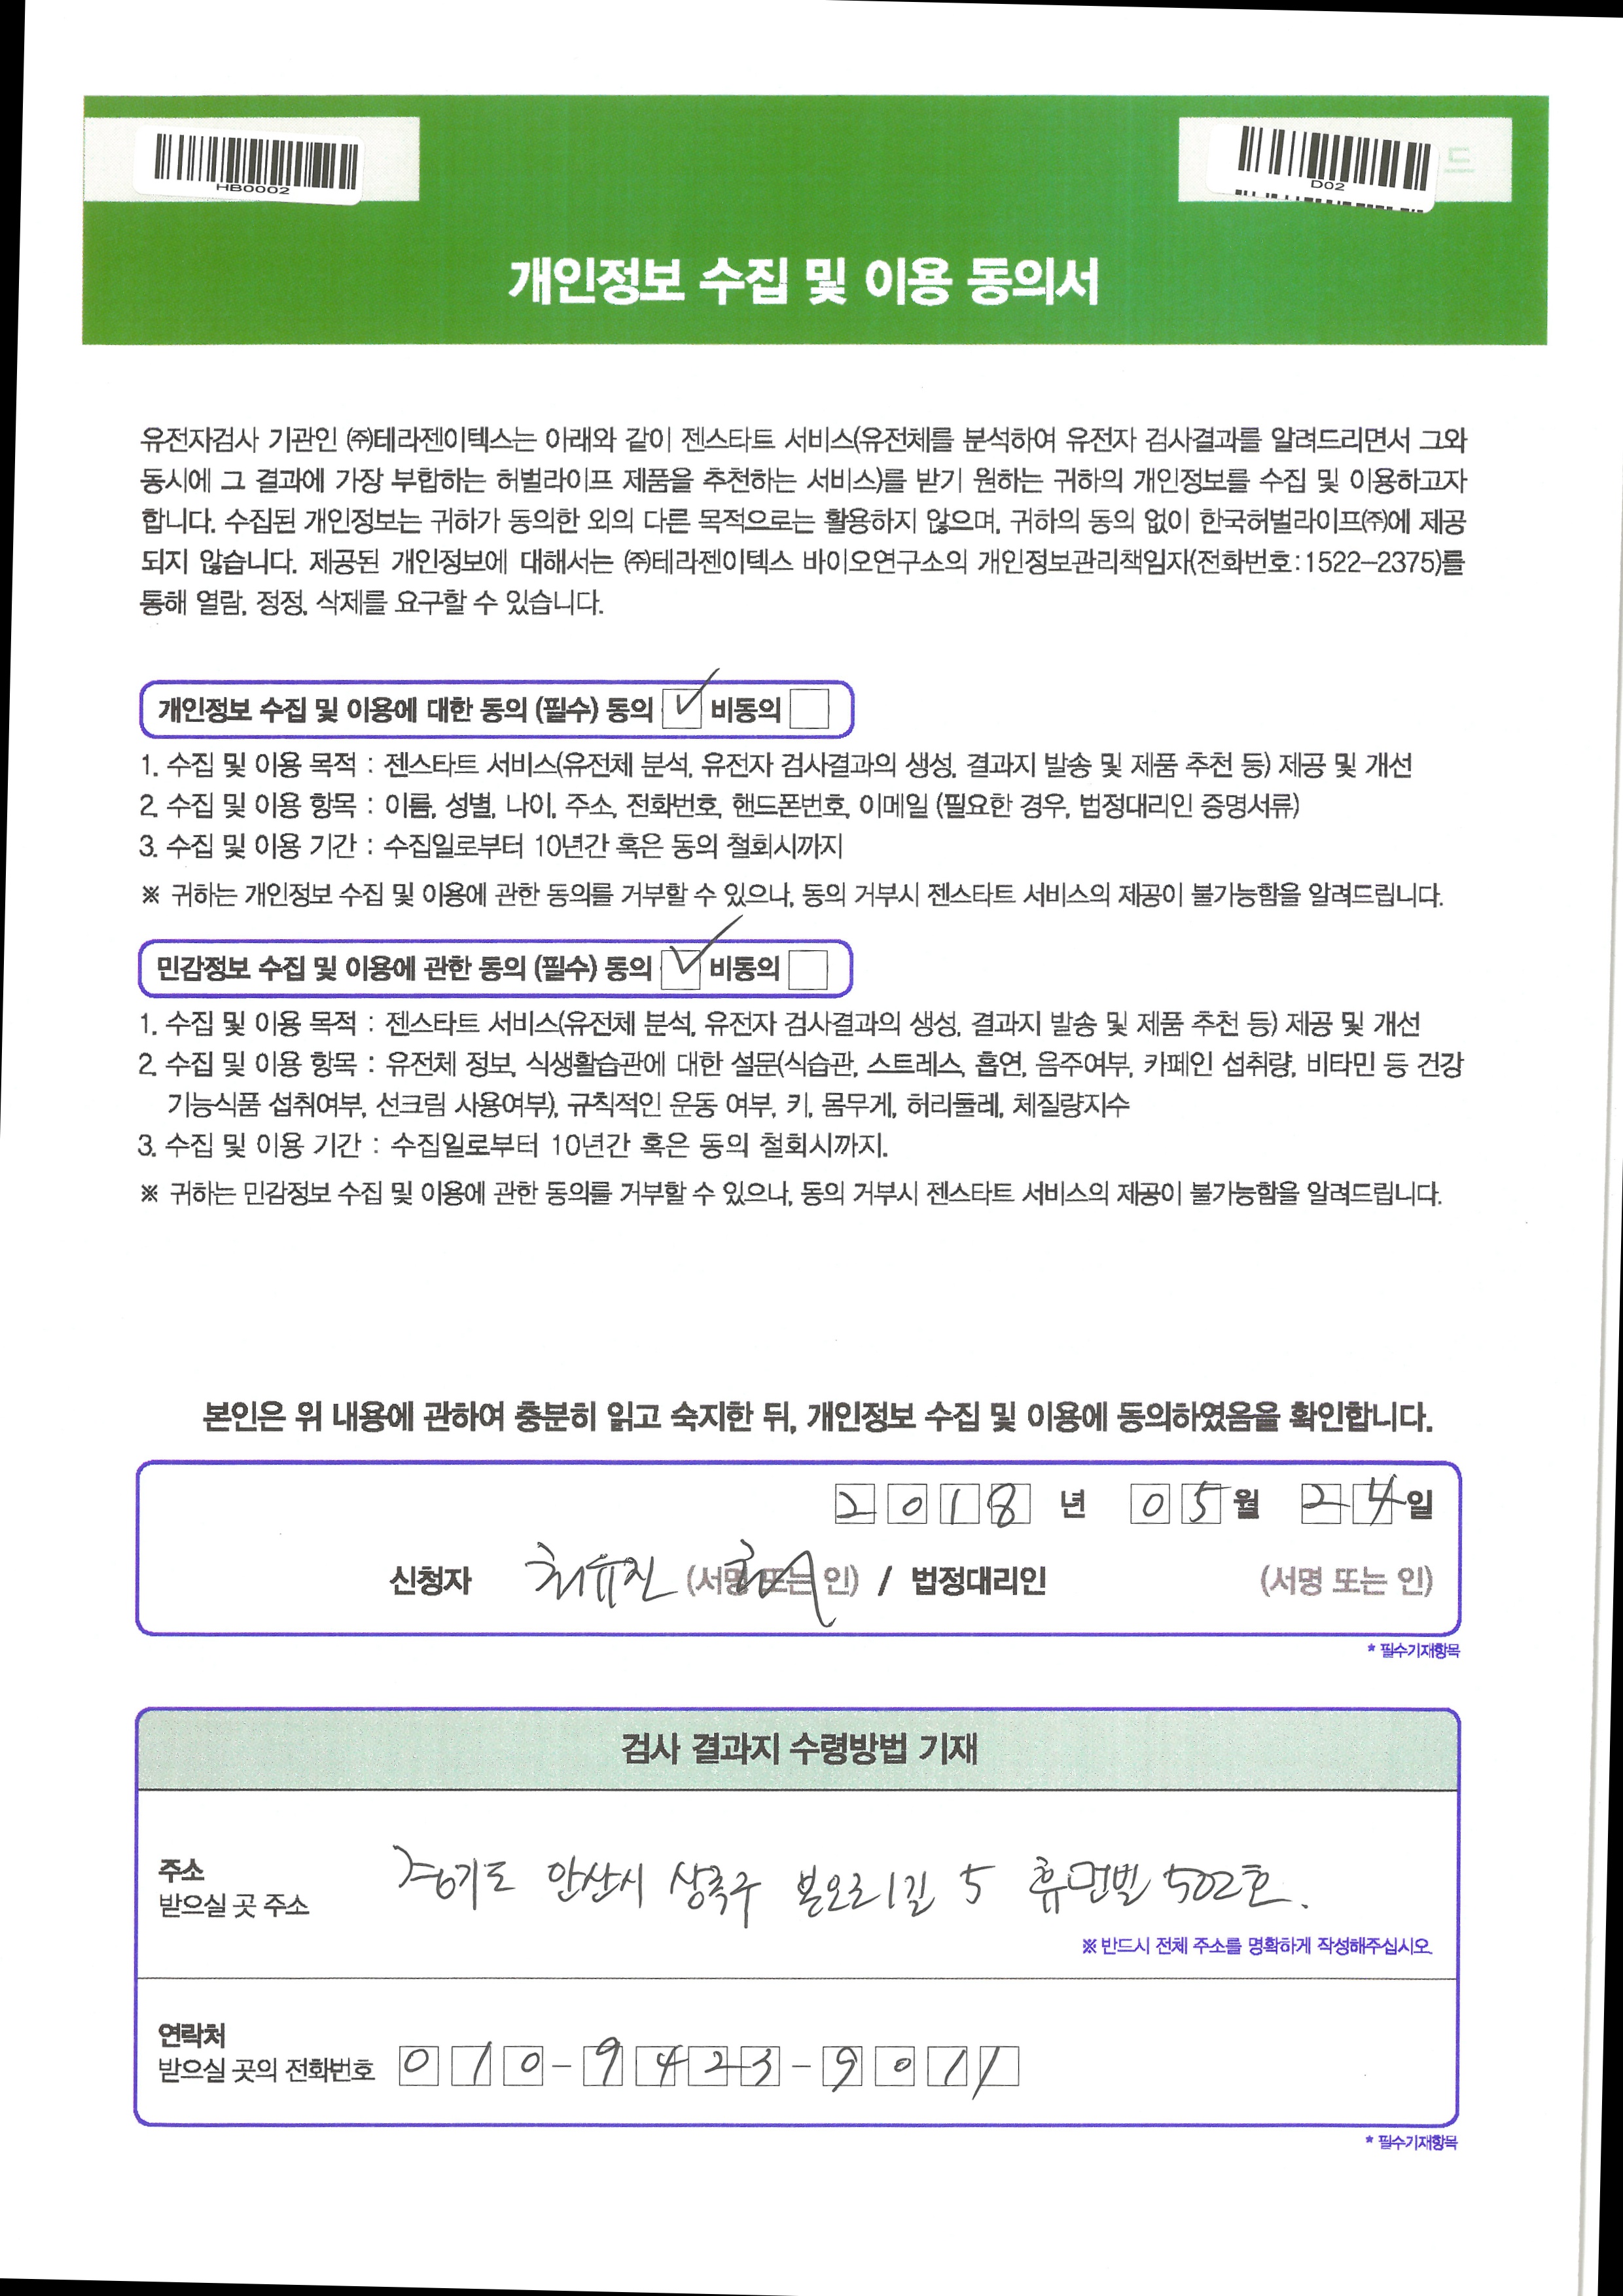 HB0002
D02
개인정보 수집 및 이용 동의서
유전자검사 기관인 ㈜테라젠이텍스는 아래와 같이 젠스타트 서비스(유전체를 분석하여 유전자 검사결과를 알려드리면서 그와
동시에 그 결과에 가장 부합하는 허벌라이프 제품을 추천하는 서비스)를 받기 원하는 귀하의 개인정보를 수집 및 이용하고자
합니다. 수집된 개인정보는 귀하가 동의한 외의 다른 목적으로는 활용하지 않으며, 귀하의 동의 없이 한국허벌라이프㈜에 제공
되지 않습니다. 제공된 개인정보에 대해서는 ㈜테라젠이텍스 바이오연구소의 개인정보관리책임자(전화번호:1522-2375)를
통해 열람, 정정, 삭제를 요구할 수 있습니다.
개인정보 수집 및 이용에 대한 동의 (필수) 동의 ✓ 비동의
1. 수집 및 이용 목적 : 젠스타트 서비스(유전체 분석, 유전자 검사결과의 생성, 결과지 발송 및 제품 추천 등) 제공 및 개선
2. 수집 및 이용 항목 : 이름, 성별, 나이, 주소, 전화번호, 핸드폰번호, 이메일 (필요한 경우, 법정대리인 증명서류)
3. 수집 및 이용 기간 : 수집일로부터 10년간 혹은 동의 철회시까지
※ 귀하는 개인정보 수집 및 이용에 관한 동의를 거부할 수 있으나, 동의 거부시 젠스타트 서비스의 제공이 불가능함을 알려드립니다.
민감정보 수집 및 이용에 관한 동의 (필수) 동의 ✓ 비동의
1. 수집 및 이용 목적 : 젠스타트 서비스(유전체 분석, 유전자 검사결과의 생성, 결과지 발송 및 제품 추천 등) 제공 및 개선
2. 수집 및 이용 항목 : 유전체 정보, 식생활습관에 대한 설문(식습관, 스트레스, 흡연, 음주여부, 카페인 섭취량, 비타민 등 건강
기능식품 섭취여부, 선크림 사용여부), 규칙적인 운동 여부, 키, 몸무게, 허리둘레, 체질량지수
3. 수집 및 이용 기간 : 수집일로부터 10년간 혹은 동의 철회시까지.
※ 귀하는 민감정보 수집 및 이용에 관한 동의를 거부할 수 있으나, 동의 거부시 젠스타트 서비스의 제공이 불가능함을 알려드립니다.
본인은 위 내용에 관하여 충분히 읽고 숙지한 뒤, 개인정보 수집 및 이용에 동의하였음을 확인합니다.
2018 년 05 월 24 일
신청자 최유진 (서명 또는 인) / 법정대리인 (서명 또는 인)
* 필수기재항목
검사 결과지 수령방법 기재
주소
경기도 안산시 상록구 본오로1길 5 휴먼빌 502호.
받으실 곳 주소
※ 반드시 전체 주소를 명확하게 작성해주십시오.
연락처
받으실 곳의 전화번호 010-9423-9011
* 필수기재항목